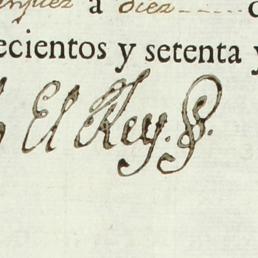 a diez
ecientos y setenta y
El Rey.